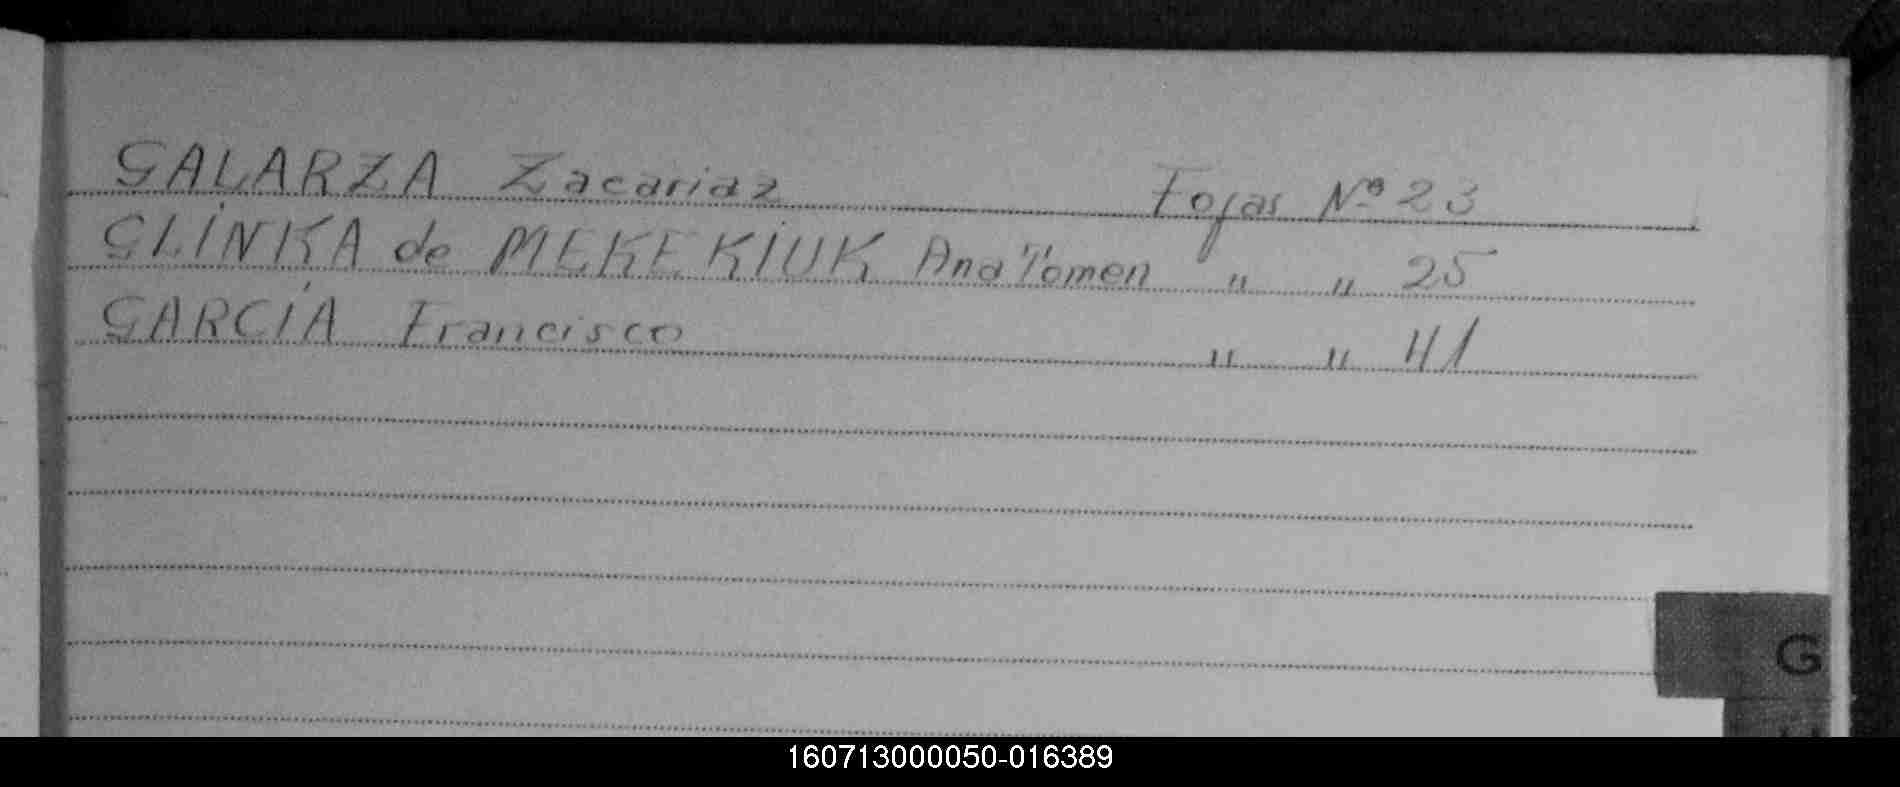 GALARZA Zacariaz Fojas Nº 23
GLÍNKA de MEKEKÍUK Ana Tomen " " 25
GARCÍA Francisco " " 41
G
160713000050-016389